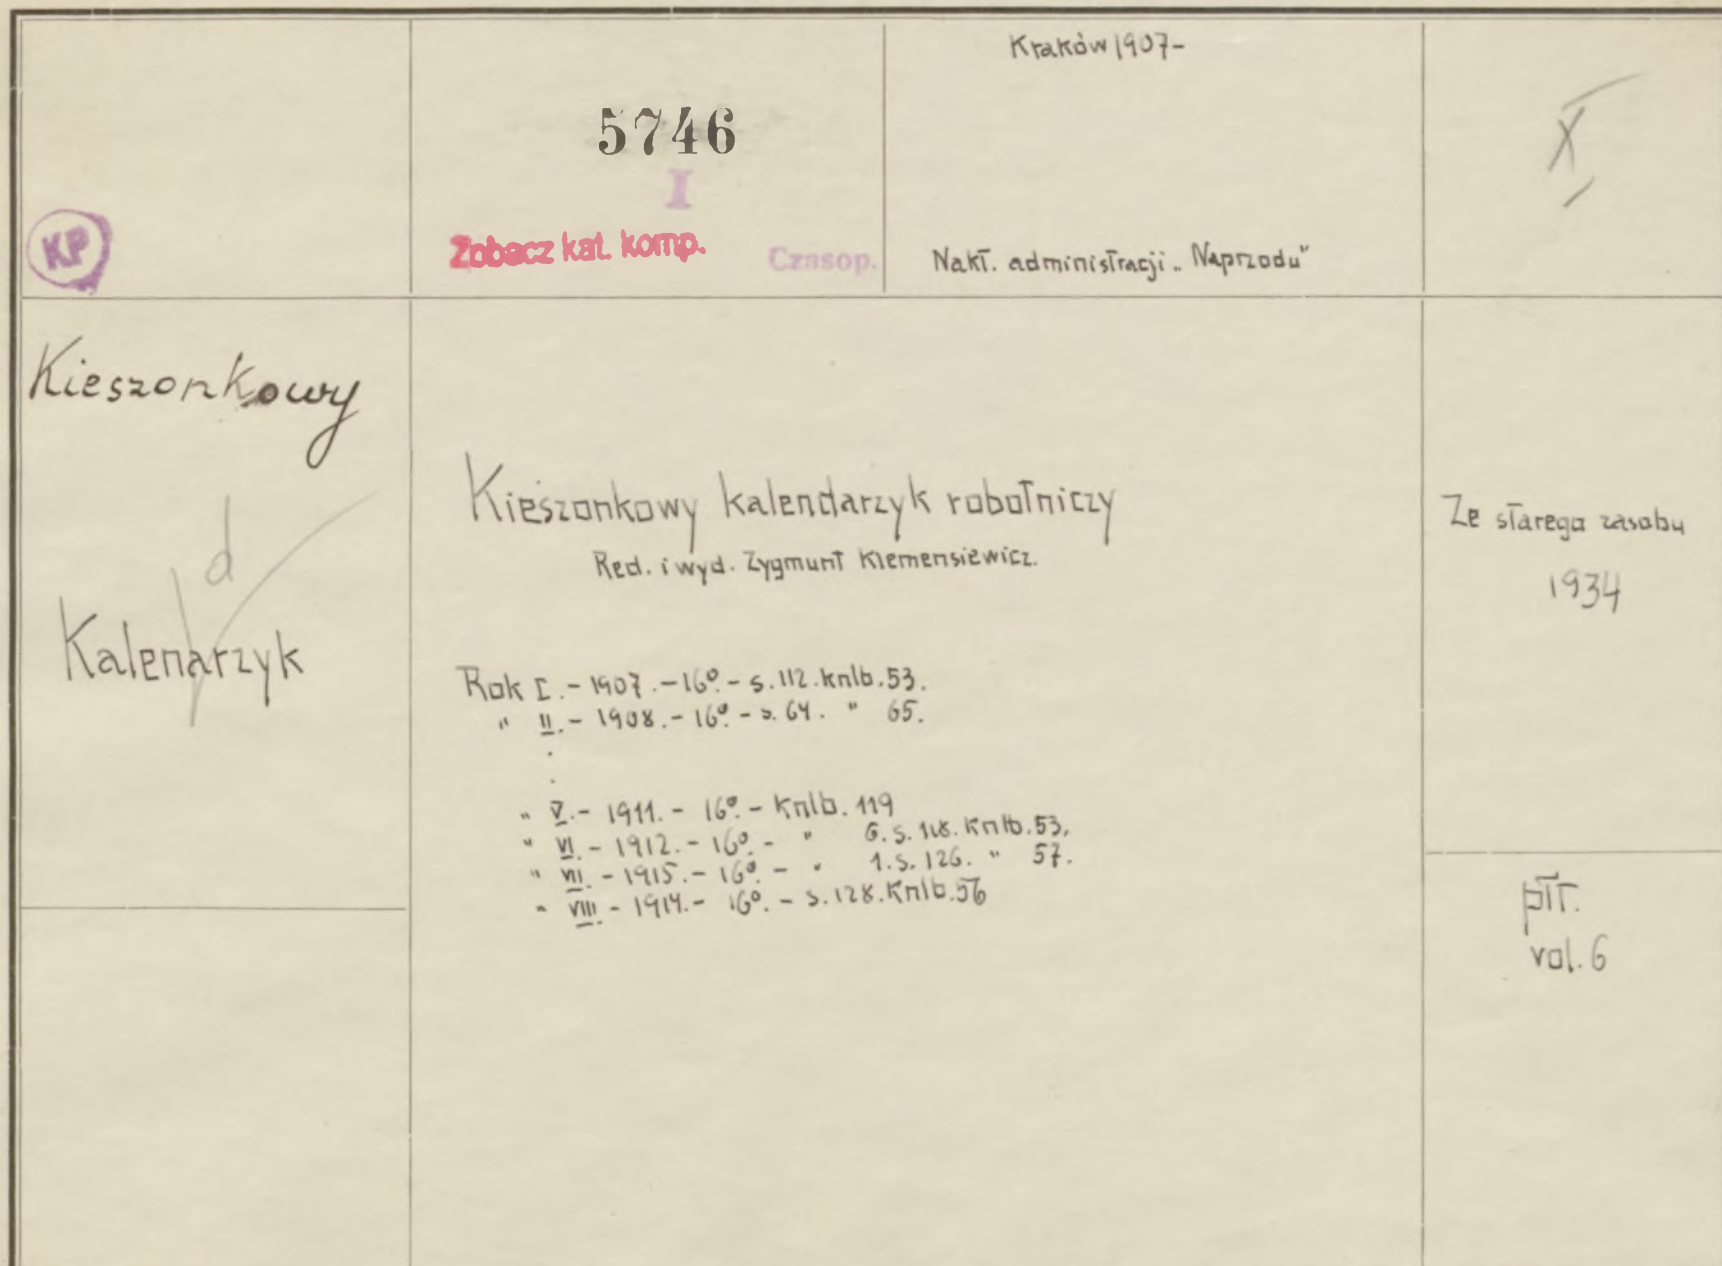 Kraków 1907-
5746
I
X
KP
Zobacz kat. komp.
Czasop.
Nakł. administracji „Naprzodu"
Kieszonkowy
d
Kalenarzyk
Kieszonkowy kalendarzyk robotniczy
Red. i wyd. Zygmunt Klemensiewicz.
Rok I. - 1907. - 16º. - s. 112. knlb. 53.
" II. - 1908. - 16º. - s. 64. " 65.
.
.
" V. - 1911. - 16º. - knlb. 119
" VI. - 1912. - 16º. - " 6. s. 118. knlb. 53.
" VII. - 1913. - 16º. - " 1. s. 126. " 57.
" VIII. - 1914. - 16º. - s. 128. knlb. 56
Ze starego zasobu
1934
płt.
vol. 6